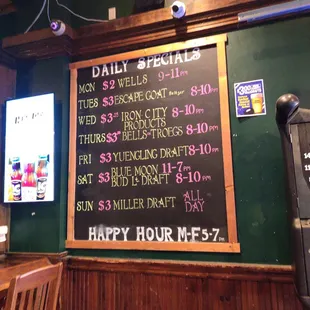 DAILY SPECIALS
MON $2 WELLS 9-11PM
TUES $3 ESCAPE GOAT Seltzer 8-10PM
WED $3 IRON CITY PRODUCTS 8-10PM
THURS $3 BELLS-TROEGS 8-10PM
FRI $3 YUENGLING DRAFT 8-10PM
SAT $3 BLUE MOON 11-7PM
BUD LT DRAFT 8-10PM
SUN $3 MILLER DRAFT ALL DAY
HAPPY HOUR M-F 5-7PM